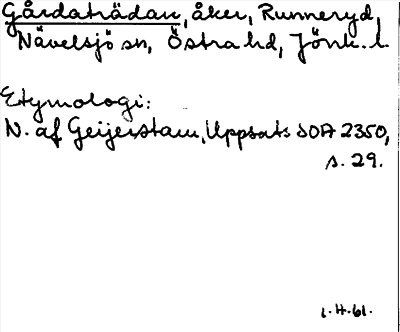 Gårdaträdan, åker, Runneryd,
Nävelsjö sn, Östra hd, Jönk. l.
Etymologi:
N. af Geijerstam, Uppsats SOA 2350,
s. 29.
1.H.61.